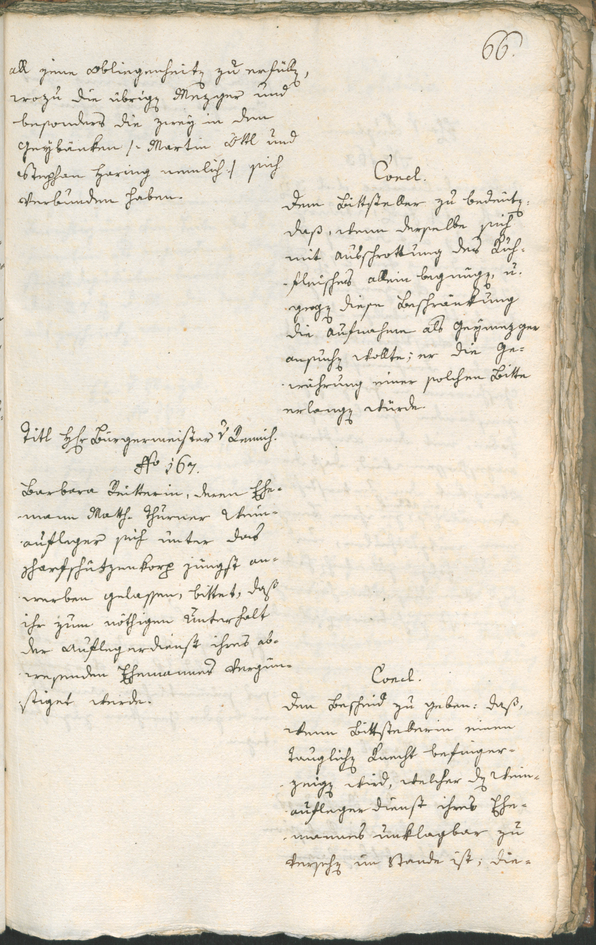 66.
all jene Obliegenheiten zu erfüllen,
wozu die übrigen Metzger und
besonders die zwey in den
Geybänken /: Martin Öttl und
Stephan Haring nemlich :/ sich
verbunden haben.
Concl.
Dem Bittsteller zu bedeuten:
daß, wenn derselbe sich
mit Ausschrottung des Kuh-
fleisches allein begnügen, u.
gegen diese Beschränkung
die Aufnahme als Geymezger
ansuchen wollte; er die Ge-
währung einer solchen Bitte
erlangen würde.
Titl Hr Bürgermeister v Remich.
No 167.
Barbara Reütterin, deren Ehe-
mann Math. Thurner Wein-
aufleger sich unter das
Scharfschützenkorp jüngst an-
werben gelassen, bittet, daß
ihr zum nöthigen Unterhalt
der Auflegerdienst ihres ab-
wesenden Ehemannes vergün-
stiget werde.
Concl.
Den Bescheid zu geben: daß,
wenn Bittstellerin einen
tauglichen Knecht befinger-
zeigen wird, welcher den Wein-
auflegerdienst ihres Ehe-
mannes unklagbar zu
versehen im Stande ist; die-